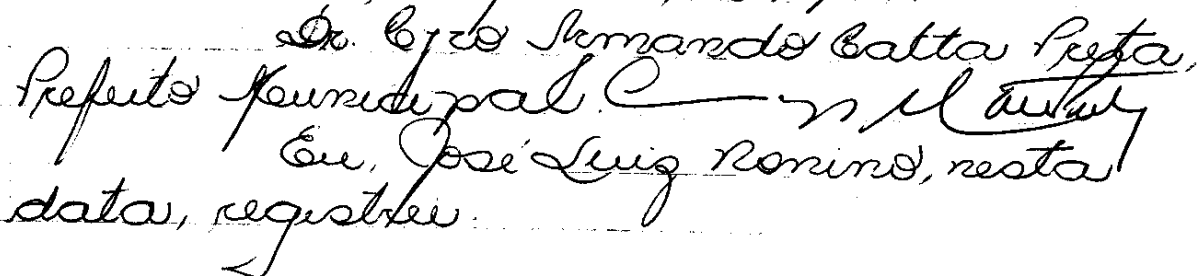 Dr. Cyro Armando Catta Preta,
Prefeito Municipal.
Eu, José Luiz Ronino, nesta
data, registrei.